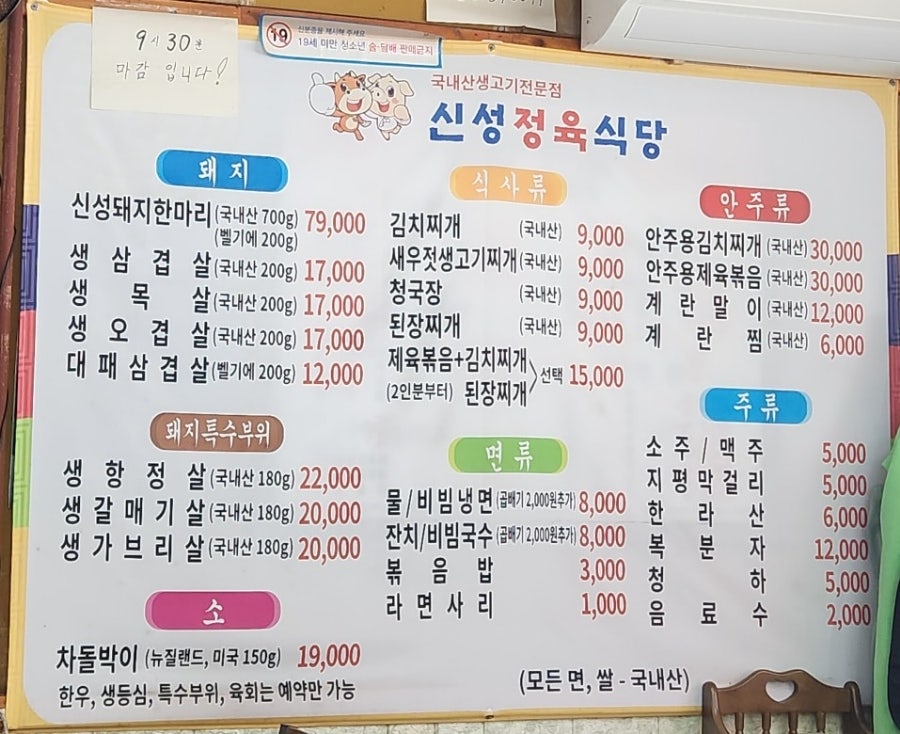 9시 30분
마감 입니다!
19
신분증을 제시해 주세요
19세 미만 청소년 술·담배 판매금지
국내산생고기전문점
신성정육식당
돼지
신성돼지한마리 (국내산 700g) 79,000
(벨기에 200g)
생삼겹살 (국내산 200g) 17,000
생목살 (국내산 200g) 17,000
생오겹살 (국내산 200g) 17,000
대패삼겹살 (벨기에 200g) 12,000
돼지특수부위
생항정살 (국내산 180g) 22,000
생갈매기살 (국내산 180g) 20,000
생가브리살 (국내산 180g) 20,000
소
차돌박이 (뉴질랜드, 미국 150g) 19,000
한우, 생등심, 특수부위, 육회는 예약만 가능
식사류
김치찌개 (국내산) 9,000
새우젓생고기찌개 (국내산) 9,000
청국장 (국내산) 9,000
된장찌개 (국내산) 9,000
제육볶음+김치찌개
(2인분부터) 된장찌개 > 선택 15,000
면류
물/비빔냉면 (곱배기 2,000원추가) 8,000
잔치/비빔국수 (곱배기 2,000원추가) 8,000
볶음밥 3,000
라면사리 1,000
안주류
안주용김치찌개 (국내산) 30,000
안주용제육볶음 (국내산) 30,000
계란말이 (국내산) 12,000
계란찜 (국내산) 6,000
주류
소주/맥주 5,000
지평막걸리 5,000
한라산 6,000
복분자 12,000
청하 5,000
음료수 2,000
(모든 면, 쌀 - 국내산)